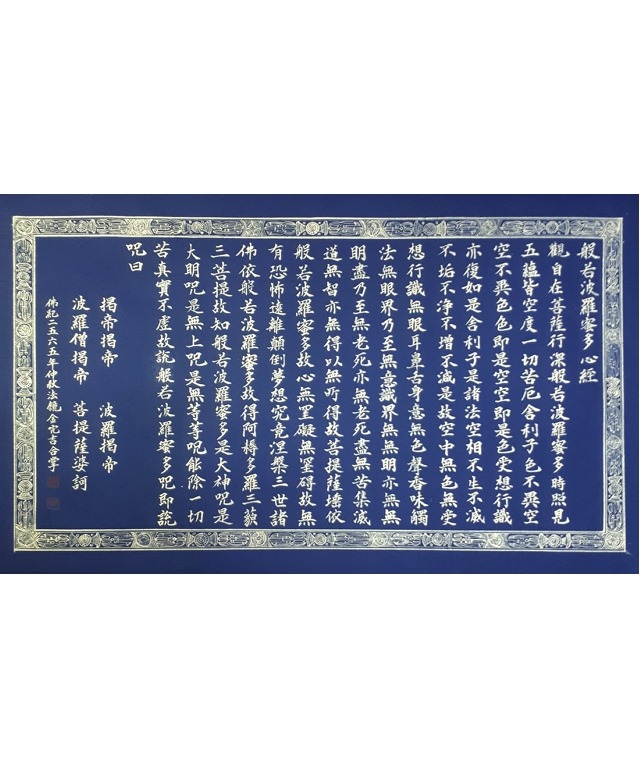 般若波羅蜜多心經
觀自在菩薩行深般若波羅蜜多時照見
五蘊皆空度一切苦厄舍利子色不異空
空不異色色即是空空即是色受想行識
亦復如是舍利子是諸法空相不生不滅
不垢不淨不增不減是故空中無色無受
想行識無眼耳鼻舌身意無色聲香味觸
法無眼界乃至無意識界無無明亦無無
明盡乃至無老死亦無老死盡無苦集滅
道無智亦無得以無所得故菩提薩埵依
般若波羅蜜多故心無罣礙無罣碍故無
有恐怖遠離顛倒夢想究竟涅槃三世諸
佛依般若波羅蜜多故得阿耨多羅三藐
三菩提故知般若波羅蜜多是大神呪是
大明呪是無上呪是無等等呪能除一切
苦真實不虛故說般若波羅蜜多呪即說
呪曰
揭帝揭帝 波羅揭帝
波羅僧揭帝 菩提薩婆訶
佛紀二五六五年仲秋法鏡金完吉合掌